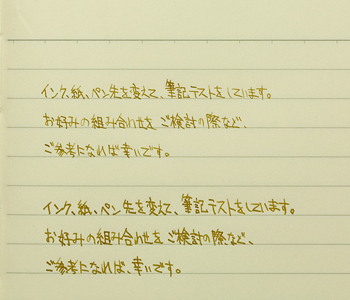 インク、紙、ペン先を変えて、筆記テストをしています。
お好みの組み合わせをご検討の際など、
ご参考になれば幸いです。
インク、紙、ペン先を変えて、筆記テストをしています。
お好みの組み合わせをご検討の際など、
ご参考になれば、幸いです。